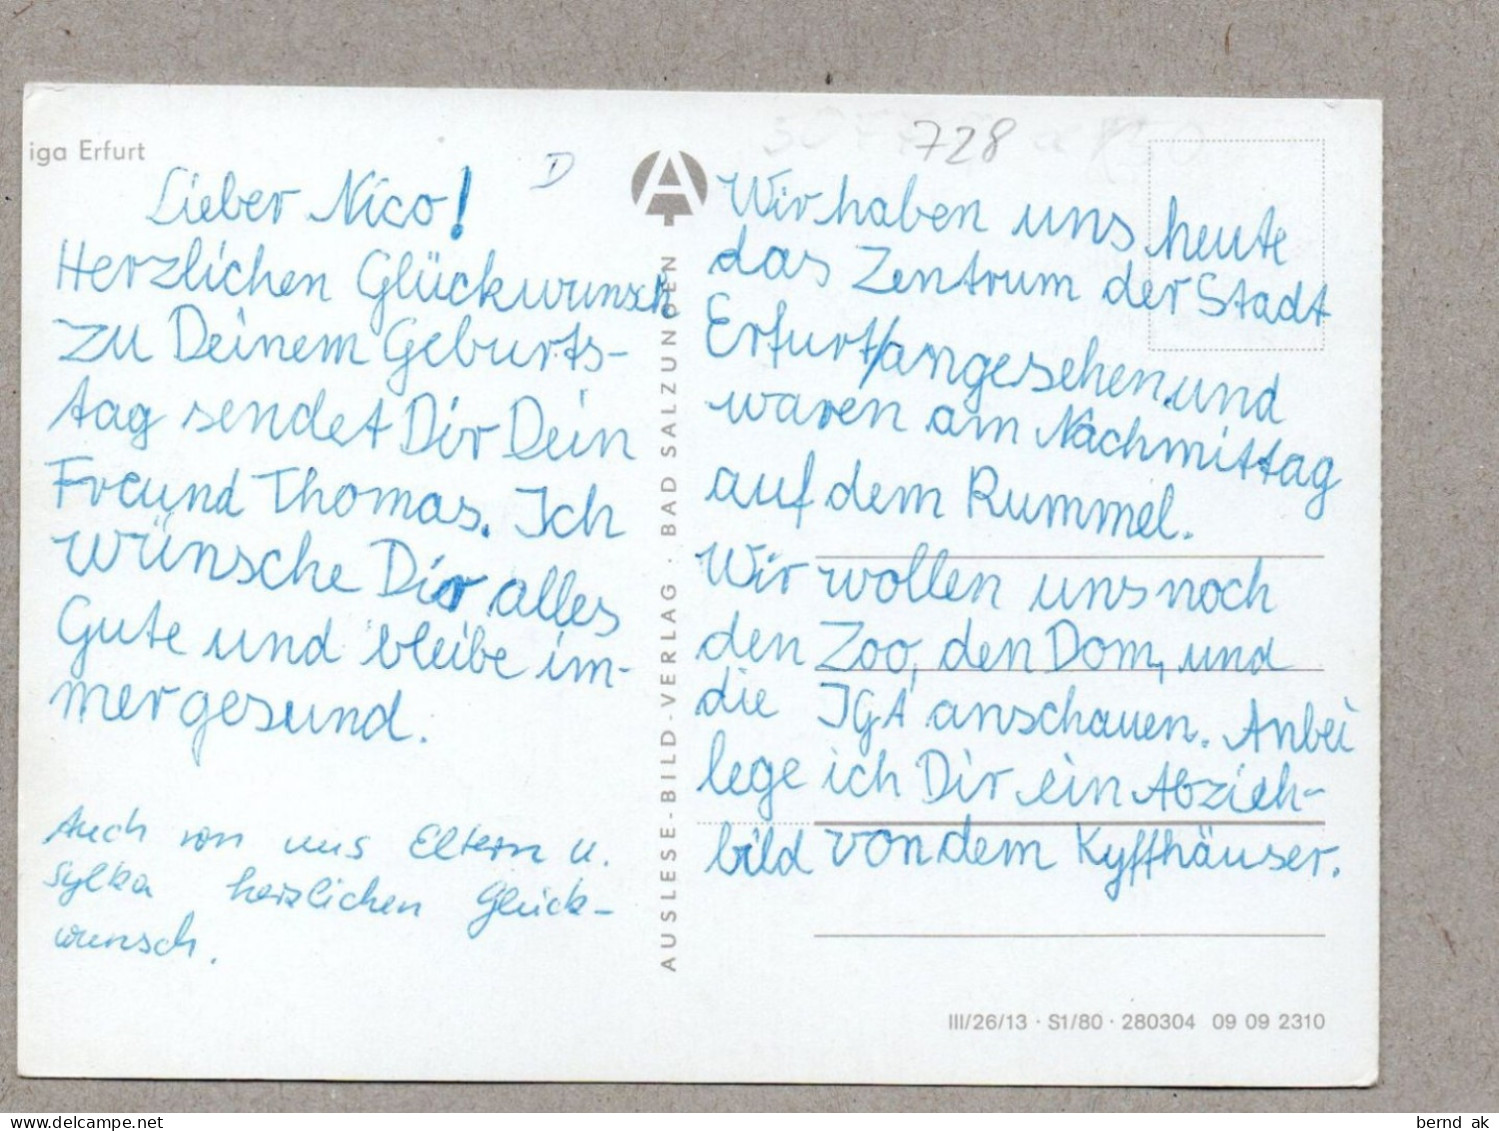 iga Erfurt
D
728
Lieber Nico!
Herzlichen Glückwunsch
zu Deinem Geburts-
tag sendet Dir Dein
Freund Thomas. Ich
wünsche Dir alles
Gute und bleibe im-
mer gesund.
Auch von uns Eltern u.
Sylka herzlichen Glück-
wunsch.
AUSLESE-BILD-VERLAG · BAD SALZUNGEN
Wir haben uns heute
das Zentrum der Stadt
Erfurt/angesehen und
waren am Nachmittag
auf dem Rummel.
Wir wollen uns noch
den Zoo, den Dom, und
die IGA anschauen. Anbei
lege ich Dir ein Abzieh-
bild von dem Kyffhäuser.
III/26/13 · S1/80 · 280304 09 09 2310
bernd ak